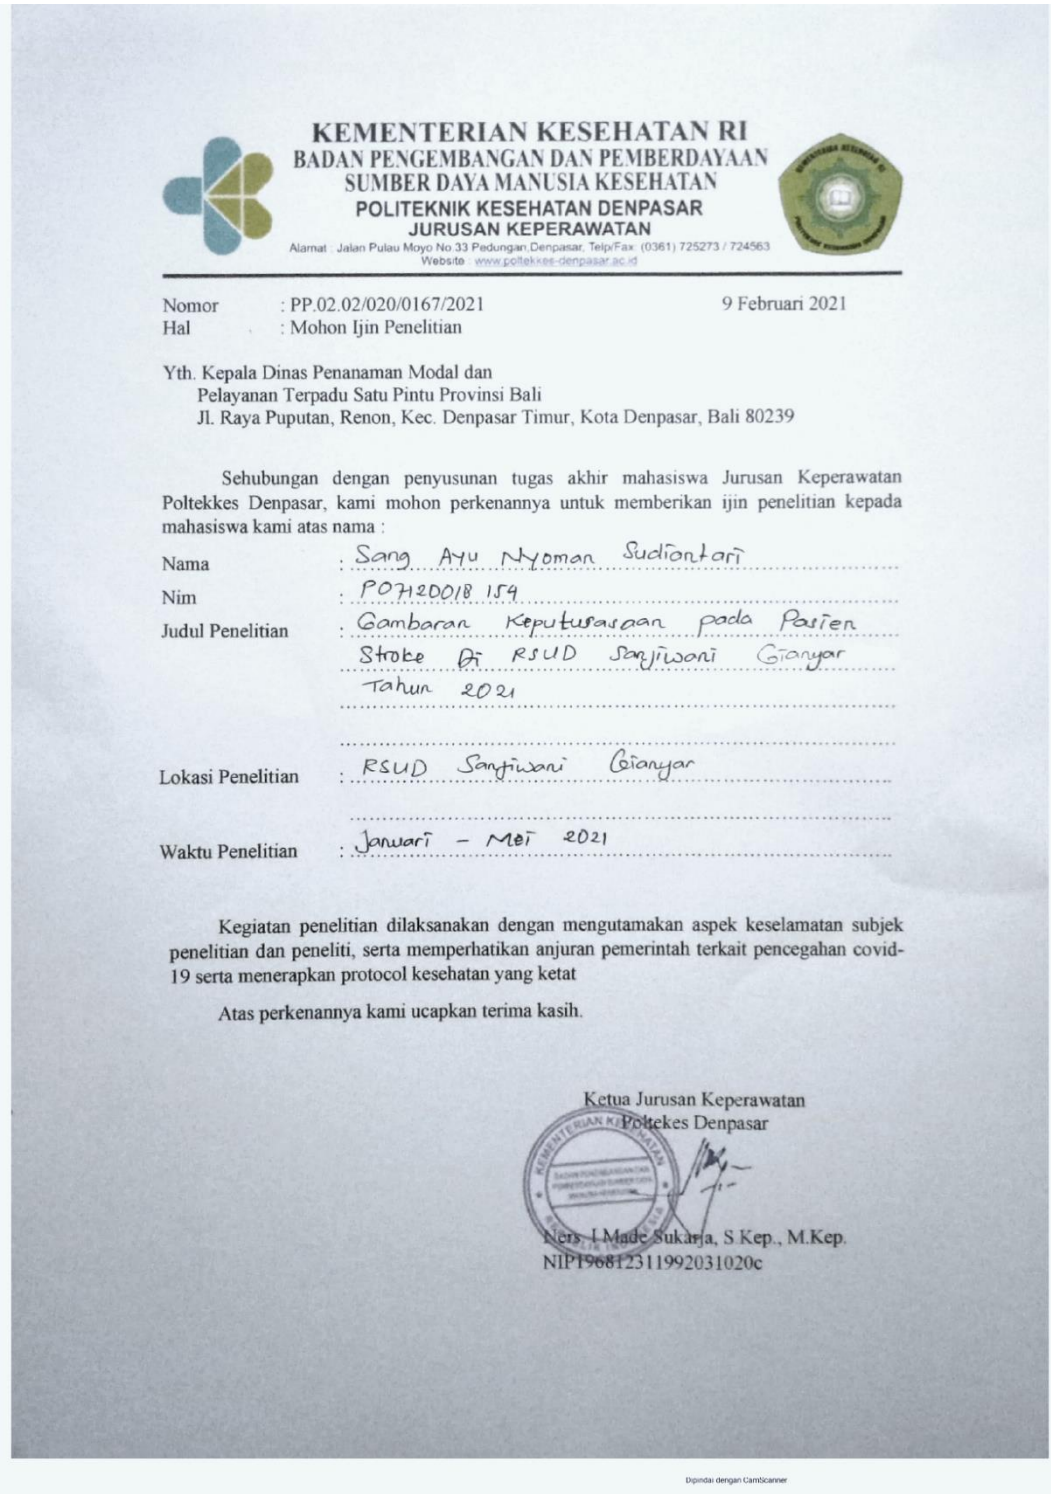 KEMENTERIAN KESEHATAN RI
BADAN PENGEMBANGAN DAN PEMBERDAYAAN
SUMBER DAYA MANUSIA KESEHATAN
POLITEKNIK KESEHATAN DENPASAR
JURUSAN KEPERAWATAN
Alamat : Jalan Pulau Moyo No.33 Pedungan,Denpasar, Telp/Fax: (0361) 725273 / 724563
Website : www.poltekkes-denpasar.ac.id
Nomor : PP.02.02/020/0167/2021 9 Februari 2021
Hal : Mohon Ijin Penelitian
Yth. Kepala Dinas Penanaman Modal dan
Pelayanan Terpadu Satu Pintu Provinsi Bali
Jl. Raya Puputan, Renon, Kec. Denpasar Timur, Kota Denpasar, Bali 80239
Sehubungan dengan penyusunan tugas akhir mahasiswa Jurusan Keperawatan
Poltekkes Denpasar, kami mohon perkenannya untuk memberikan ijin penelitian kepada
mahasiswa kami atas nama :
Nama : Sang Ayu Nyoman Sudiantari
Nim : P07120018 154
Judul Penelitian : Gambaran Keputusasaan pada Pasien
Stroke Di RSUD Sanjiwani Gianyar
Tahun 2021
Lokasi Penelitian : RSUD Sanjiwani Gianyar
Waktu Penelitian : Januari - Mei 2021
Kegiatan penelitian dilaksanakan dengan mengutamakan aspek keselamatan subjek
penelitian dan peneliti, serta memperhatikan anjuran pemerintah terkait pencegahan covid-
19 serta menerapkan protocol kesehatan yang ketat
Atas perkenannya kami ucapkan terima kasih.
Ketua Jurusan Keperawatan
Poltekes Denpasar
KEMENTERIAN KESEHATAN
REPUBLIK INDONESIA
Ners. I Made Sukarja, S.Kep., M.Kep.
NIP196812311992031020c
Dipindai dengan CamScanner